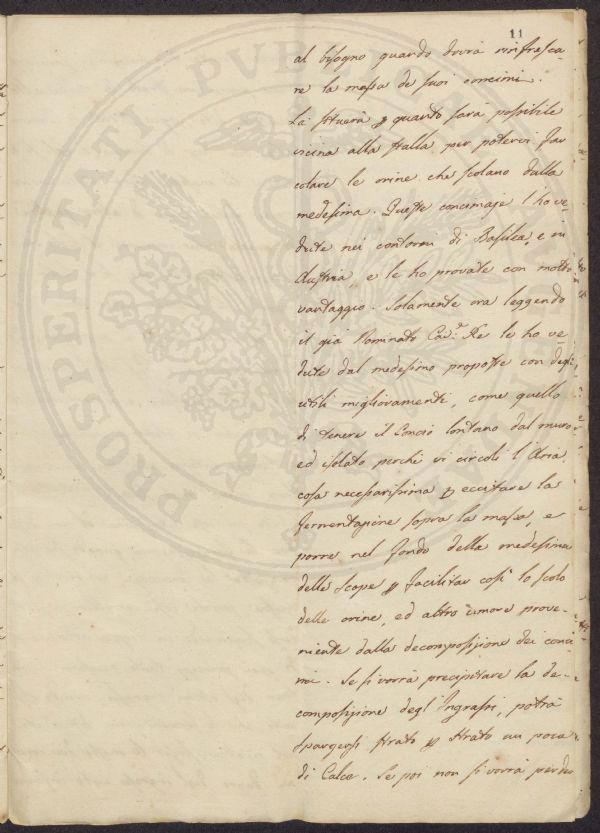 11
al bisogno quando dovrà rinfresca-
re la massa de suoi concimi.
La situerà p quanto sarà possibile
vicina alla stalla per potervi far
colare le orine che scolano dalla
medesima. Queste concimaje l'ho ve-
dute nei contorni di Basilea, e in
Austria, e le ho provate con molto
vantaggio. Solamente ora leggendo
il già Nominato Cav.e Re le ho ve-
dute dal medesimo proposte con degli
utili miglioramenti, come quello
di tenere il Concio lontano dal muro
ed isolato perchè vi circoli l'Aria
cosa necessarissima p eccitare la
fermentazione sopra la massa, e
porre nel fondo della medesima
delle Scope p facilitar così lo scolo
delle orine, ed altro umore prove-
niente dalla decomposizione dei conci-
mi. Se si vorrà precipitare la de-
composizione degl'Ingrassi, potrà
spargersi strato p strato un poca
di Calce. Se poi non si vorrà perder
PROSPERITATI PVBLICAE